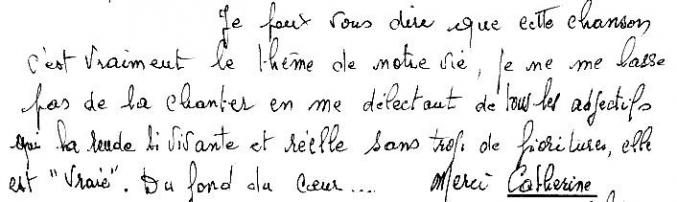 Je peux vous dire que cette chanson
c'est vraiment le thème de notre vie, je ne me lasse
pas de la chanter en me délectant de tous les adjectifs
qui la rende si vivante et réelle sans trop de fioritures, elle
est "Vraie". Du fond du cœur.... Merci Catherine